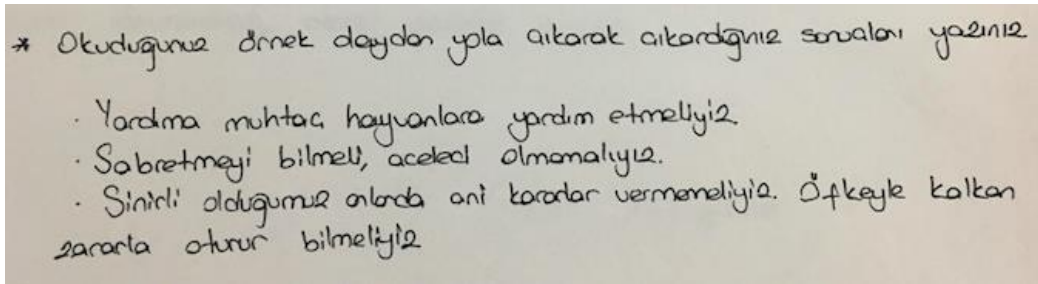 * Okuduğunuz örnek olaydan yola çıkarak çıkardığınız sonuçları yazınız
· Yardıma muhtaç hayvanlara yardım etmeliyiz.
· Sabretmeyi bilmeli, aceleci olmamalıyız.
· Sinirli olduğumuz anlarda ani kararlar vermemeliyiz. Öfkeyle kalkan
zararla oturur bilmeliyiz